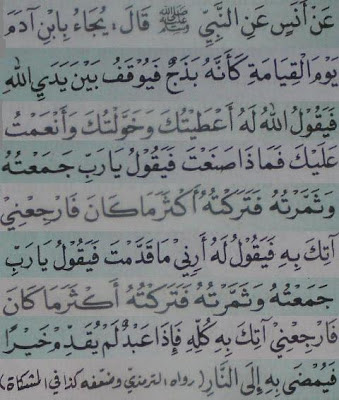 عَنْ أَنَسٍ عَنِ النَّبِيِّ ﷺ قَالَ: يُجَاءُ بِابْنِ آدَمَ
يَوْمَ الْقِيَامَةِ كَأَنَّهُ بَذَجٌ فَيُوْقَفُ بَيْنَ يَدَيِ اللهِ
فَيَقُوْلُ اللهُ لَهُ أَعْطَيْتُكَ وَخَوَّلْتُكَ وَأَنْعَمْتُ
عَلَيْكَ فَمَاذَا صَنَعْتَ فَيَقُوْلُ يَارَبِّ جَمَعْتُهُ
وَثَمَّرْتُهُ فَتَرَكْتُهُ أَكْثَرَ مَا كَانَ فَارْجِعْنِيْ
آتِكَ بِهِ فَيَقُوْلُ لَهُ أَرِنِيْ مَا قَدَّمْتَ فَيَقُوْلُ يَارَبِّ
جَمَعْتُهُ وَثَمَّرْتُهُ فَتَرَكْتُهُ أَكْثَرَ مَا كَانَ
فَارْجِعْنِيْ آتِكَ بِهِ كُلِّهِ فَإِذَا عَبْدٌ لَمْ يُقَدِّمْ خَيْرًا
فَيُمْضَى بِهِ إِلَى النَّارِ (رواه الترمذي وضعفه كذا في المشكاة)